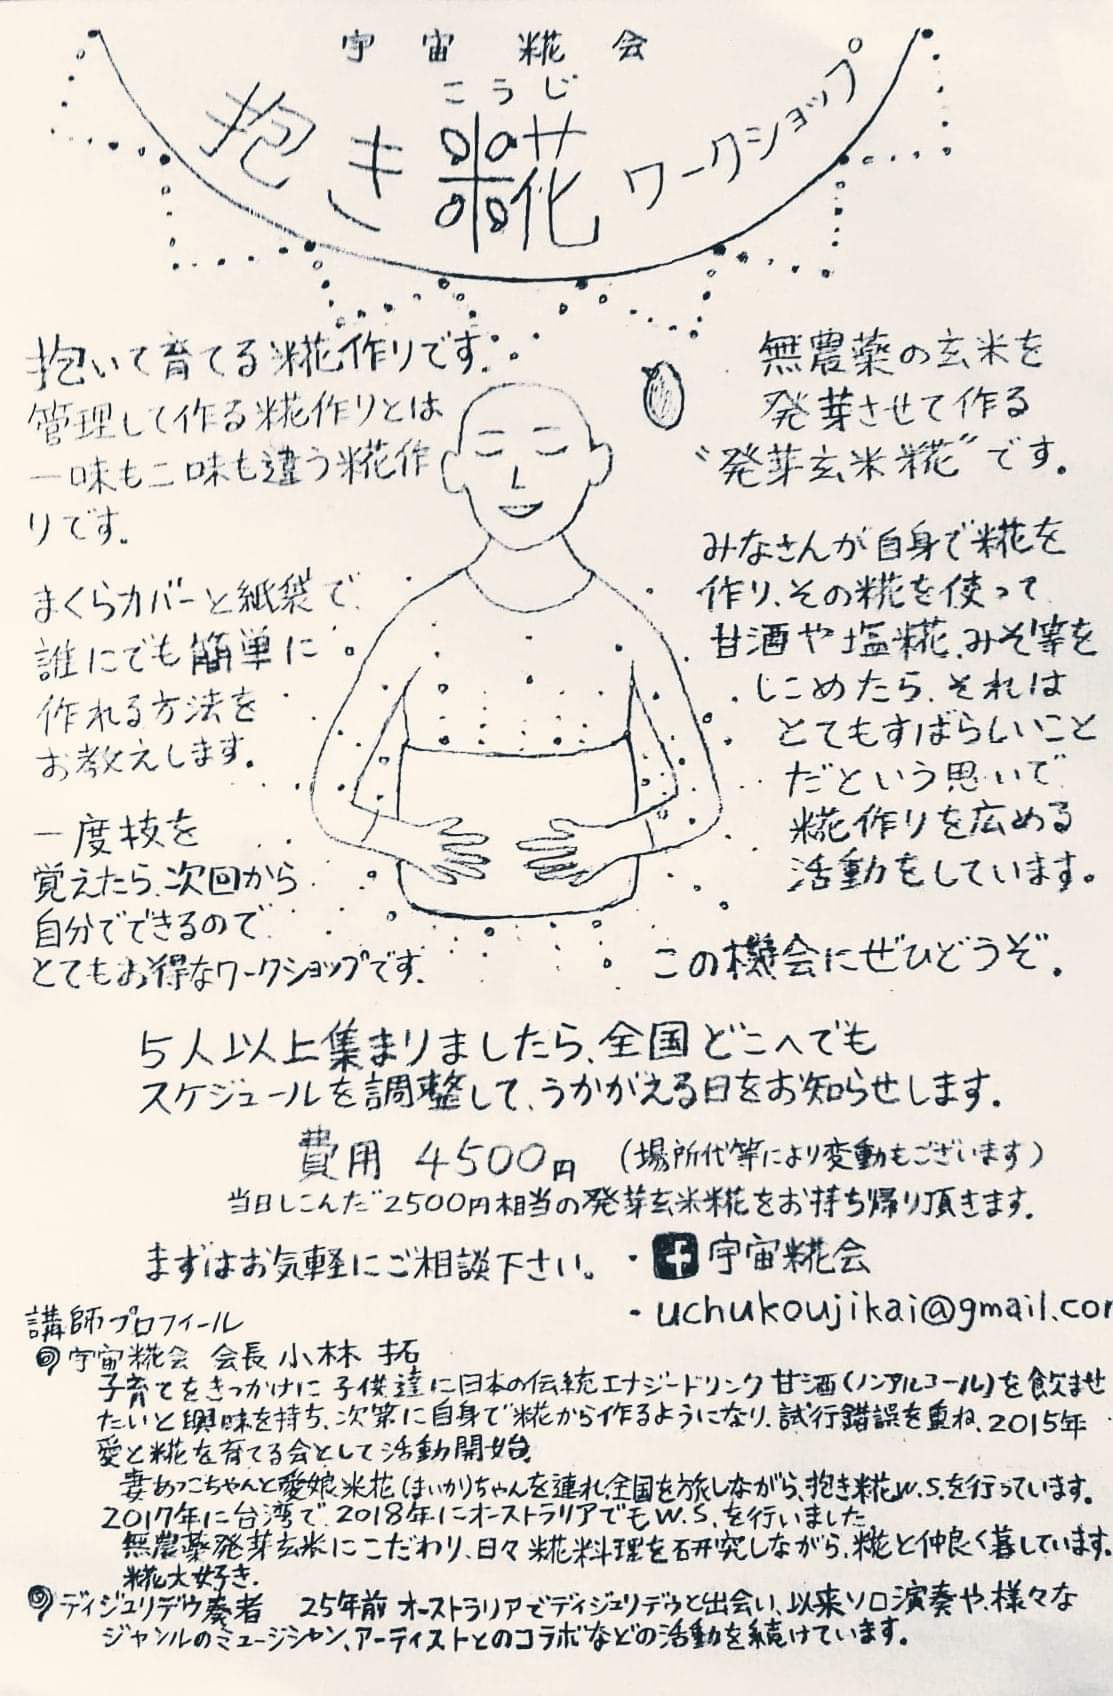 宇宙糀会
こうじ
抱き糀ワークショップ
抱いて育てる糀作りです。
管理して作る糀作りとは
一味も二味も違う糀作
りです。
まくらカバーと紙袋で、
誰にでも簡単に
作れる方法を
お教えします。
一度技を
覚えたら、次回から
自分でできるので
とてもお得なワークショップです。
無農薬の玄米を
発芽させて作る
“発芽玄米糀”です。
みなさんが自身で糀を
作り、その糀を使って
甘酒や塩糀、みそ等を
しこめたら、それは
とてもすばらしいこと
だという思いで
糀作りを広める
活動をしています。
この機会にぜひどうぞ。
5人以上集まりましたら、全国どこへでも
スケジュールを調整して、うかがえる日をお知らせします。
費用 4500円 (場所代等により変動もございます)
当日しこんだ2500円相当の発芽玄米糀をお持ち帰り頂きます。
まずはお気軽にご相談下さい。
・f宇宙糀会
・uchukoujikai@gmail.com
講師プロフィール
宇宙糀会 会長 小林 拓
子育てをきっかけに子供達に日本の伝統エナジードリンク甘酒(ノンアルコール)を飲ませ
たいと興味を持ち、次第に自身で糀から作るようになり、試行錯誤を重ね、2015年
愛と糀を育てる会として活動開始。
妻あつこちゃんと愛娘米花(まいか)ちゃんを連れ、全国を旅しながら、抱き糀W.S.を行っています。
2017年に台湾で、2018年にオーストラリアでもW.S.を行いました。
無農薬発芽玄米にこだわり、日々糀料理を研究しながら、糀と仲良く暮しています。
糀大好き。
ディジュリデゥ奏者 25年前オーストラリアでディジュリデゥと出会い、以来ソロ演奏や、様々な
ジャンルのミュージシャン、アーティストとのコラボなどの活動を続けています。